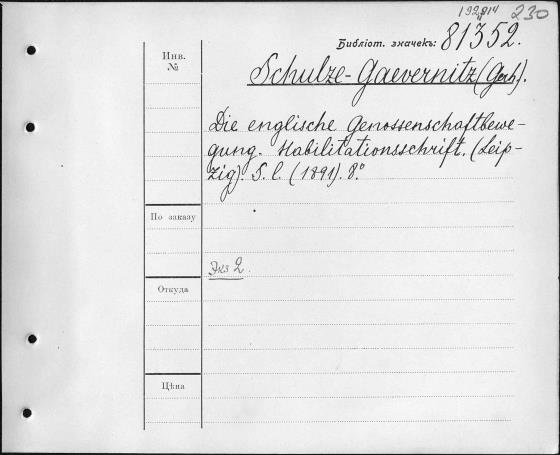 132814 230
Библіот. значекъ: 81352.
Инв.
№
Schulze-Gaevernitz (Gerh).
Die englische Genossenschaftbewe-
gung. Habilitationsschrift. (Leip-
zig). S. l. (1891). 8°
По заказу
Экз 2.
Откуда
Цѣна